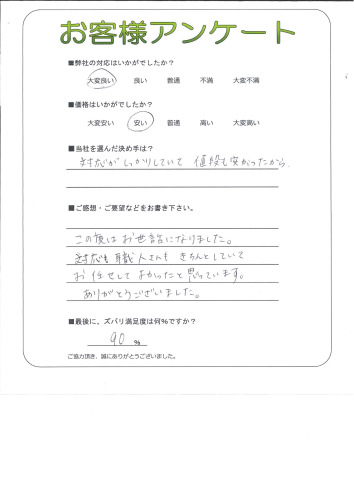 お客様アンケート
■弊社の対応はいかがでしたか？
大変良い 良い 普通 不満 大変不満
■価格はいかがでしたか？
大変安い 安い 普通 高い 大変高い
■当社を選んだ決め手は？
対応がしっかりしていて 値段も安かったから
■ご感想・ご要望などをお書き下さい。
この度はお世話になりました。
対応も職人さんもきちんとしていて
お任せしてよかったと思っています。
ありがとうございました。
■最後に、ズバリ満足度は何％ですか？
90 ％
ご協力頂き、誠にありがとうございました。